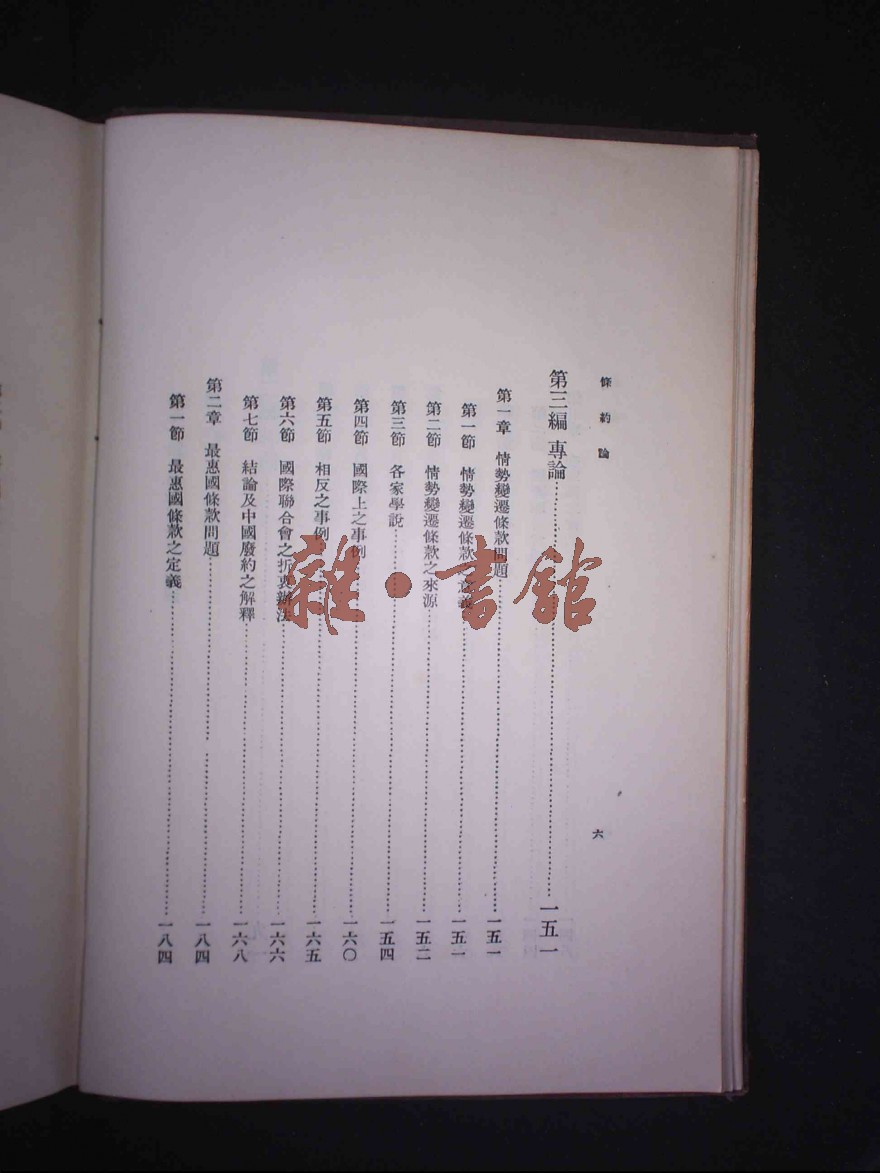 條約論
六
第三編 專論……一五一
第一章 情勢變遷條款問題……一五一
第一節 情勢變遷條款之意義……一五一
第二節 情勢變遷條款之來源……一五二
第三節 各家學說……一五四
第四節 國際上之事例……一六〇
第五節 相反之事例……一六五
第六節 國際聯合會之折衷辦法……一六六
第七節 結論及中國廢約之解釋……一六八
第二章 最惠國條款問題……一八四
第一節 最惠國條款之定義……一八四
雜·書館